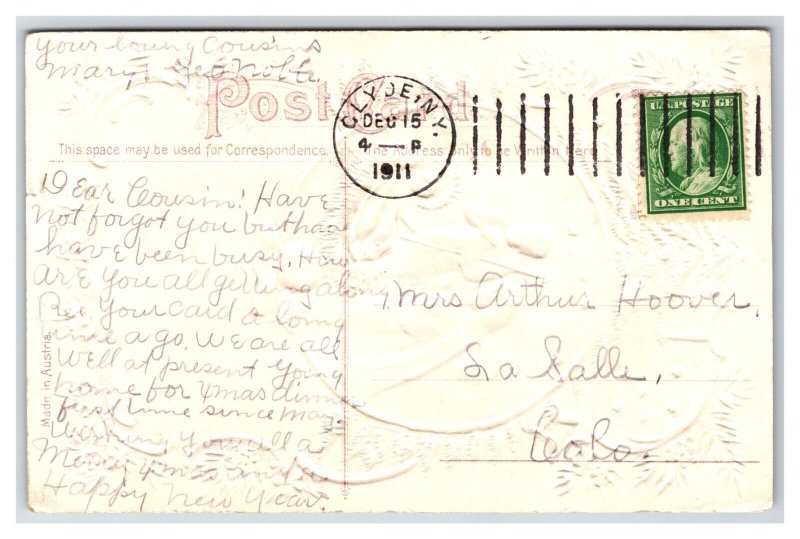 your loving Cousins
Mary & Geo Nolte.
Post Card
CLYDE, N.Y.
DEC 15
4 — P
1911
U.S. POSTAGE
ONE CENT
This space may be used for Correspondence.
The Address only to be Written Here
Dear Cousin! Have
not forgot you but
have been busy. How
are you all getting along
Rec your card a long
time a go. We are all
well at present going
home for Xmas dinner
first time since May.
Wishing you all a
Merry Xmas and a
Happy New Year.
Mrs Arthur Hoover,
La Salle,
Colo.
Made in Austria.